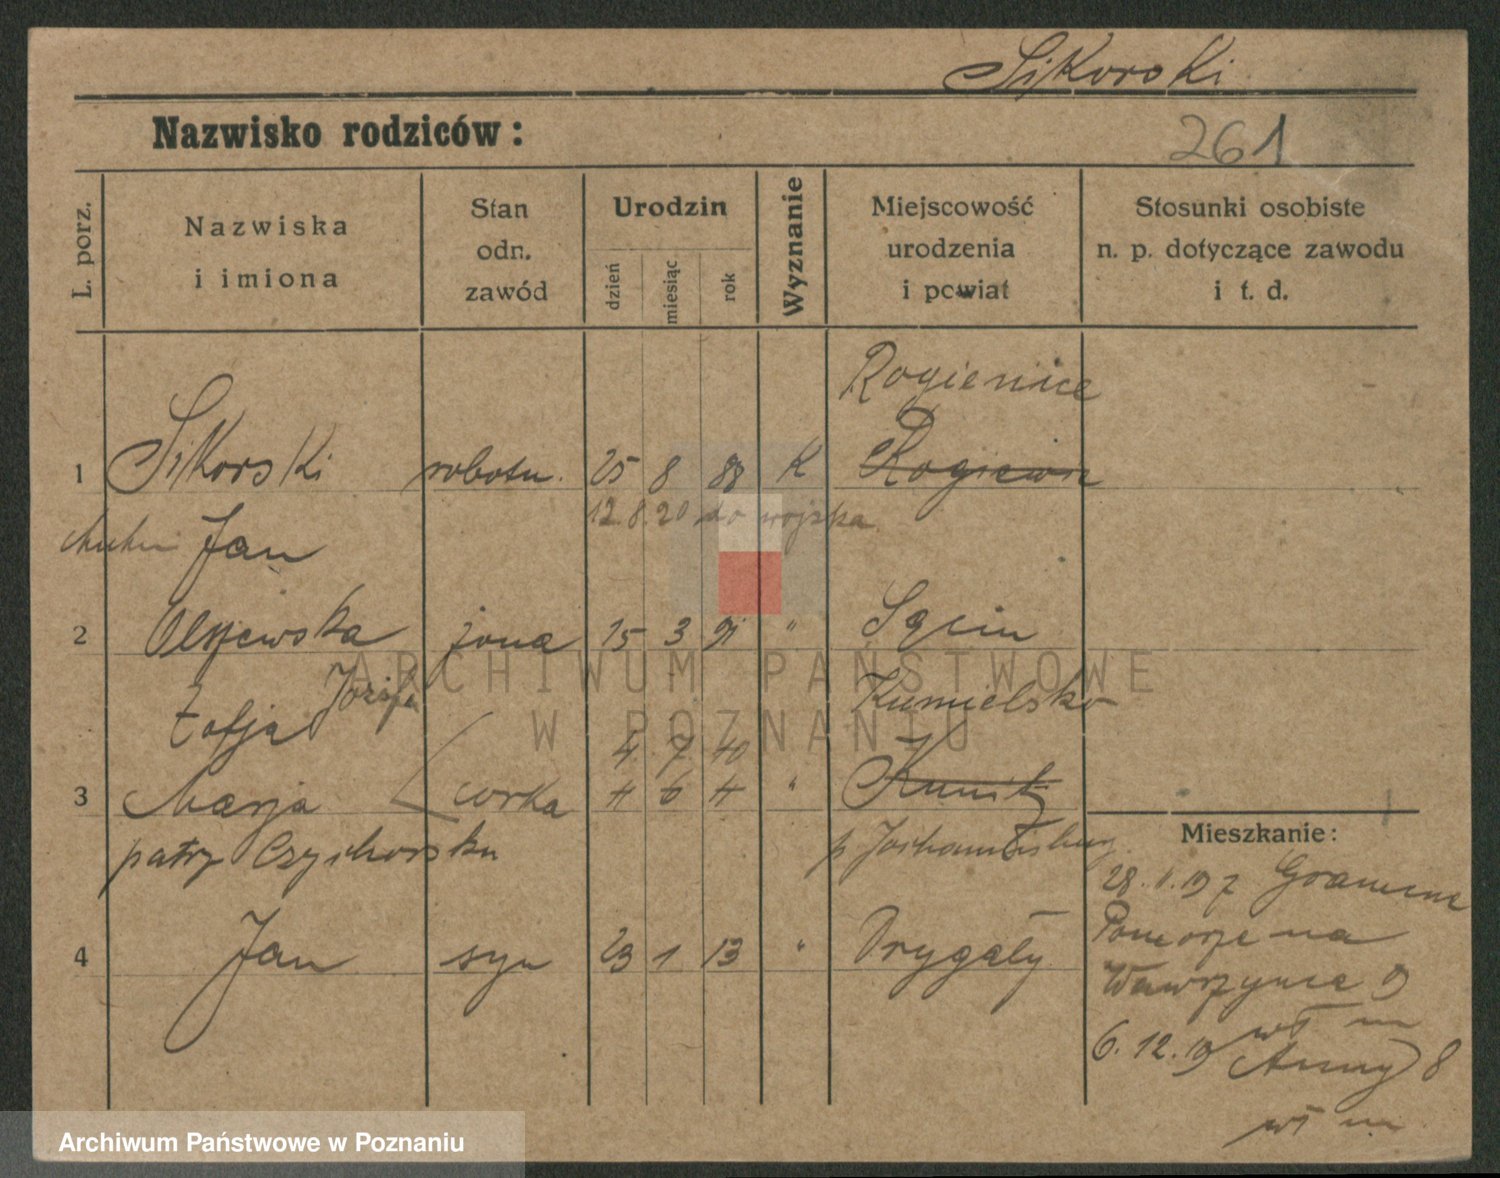 Sikorski
Nazwisko rodziców:
261
L. porz.
Nazwiska
i imiona
Stan
odn.
zawód
Urodzin
dzień
miesiąc
rok
Wyznanie
Miejscowość
urodzenia
i powiat
Stosunki osobiste
n. p. dotyczące zawodu
i t. d.
Rogienice
1 Sikorski robotn. 25 8 88 K
12.8.20 do wojska
Jan
2 Olszewska żona 15 3 91 "
Zofja Józefa Kumielsko
4. 7. 10
3 Marja córka 4 6 "
patrz
p Johannisburg
Mieszkanie:
4 Jan syn 23 1 13 " Drygały
Pomorze na
Wawrzyńca
6.12.19 Anny 8
ARCHIWUM PAŃSTWOWE
W POZNANIU
Archiwum Państwowe w Poznaniu